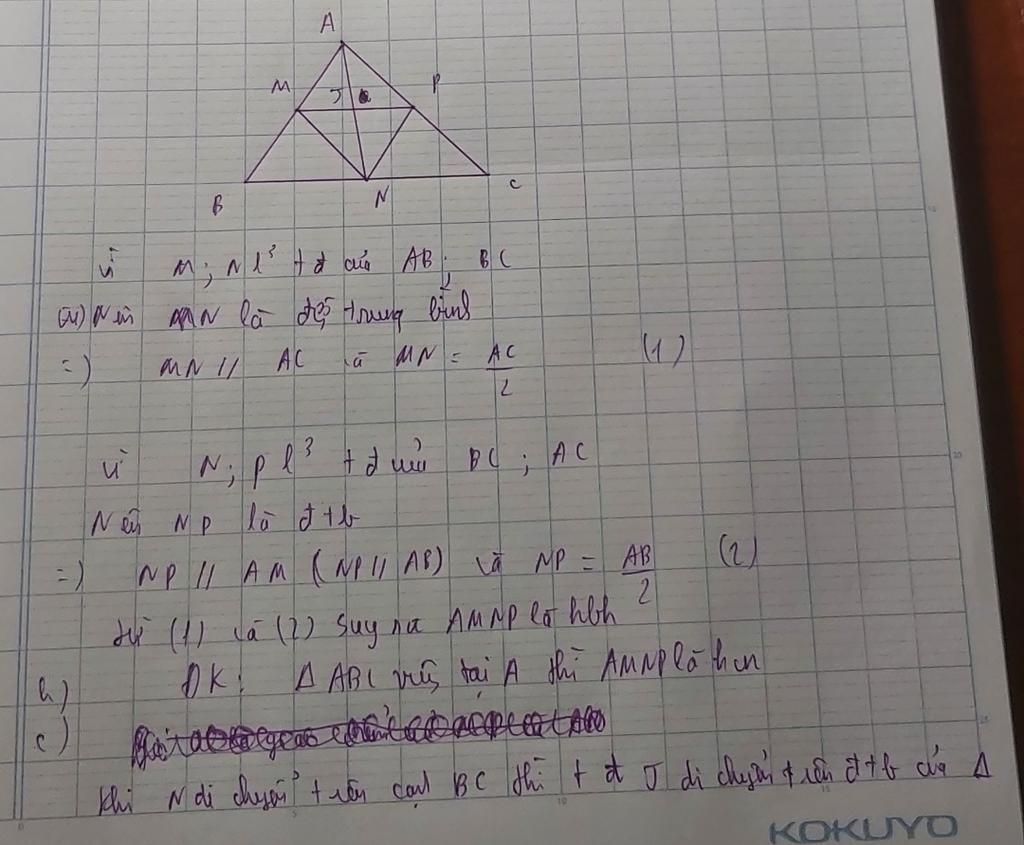 A
M J P
B N C
Vì M; N l³ + đ của AB; BC
(a) Nên MN là đg trung bình
=) MN // AC và MN = AC/2 (1)
Vì N; P l³ + đ của BC; AC
Nên NP là đ+b
=) NP // AM (NP // AB) và NP = AB/2 (2)
Từ (1) và (2) suy ra AMNP là hbh
b) ĐK: Δ ABC vg tại A thì AMNP là hcn
c)
Khi N di chuyển trên cạnh BC thì + đ J di chuyển trên đ+b của Δ
KOKUYO